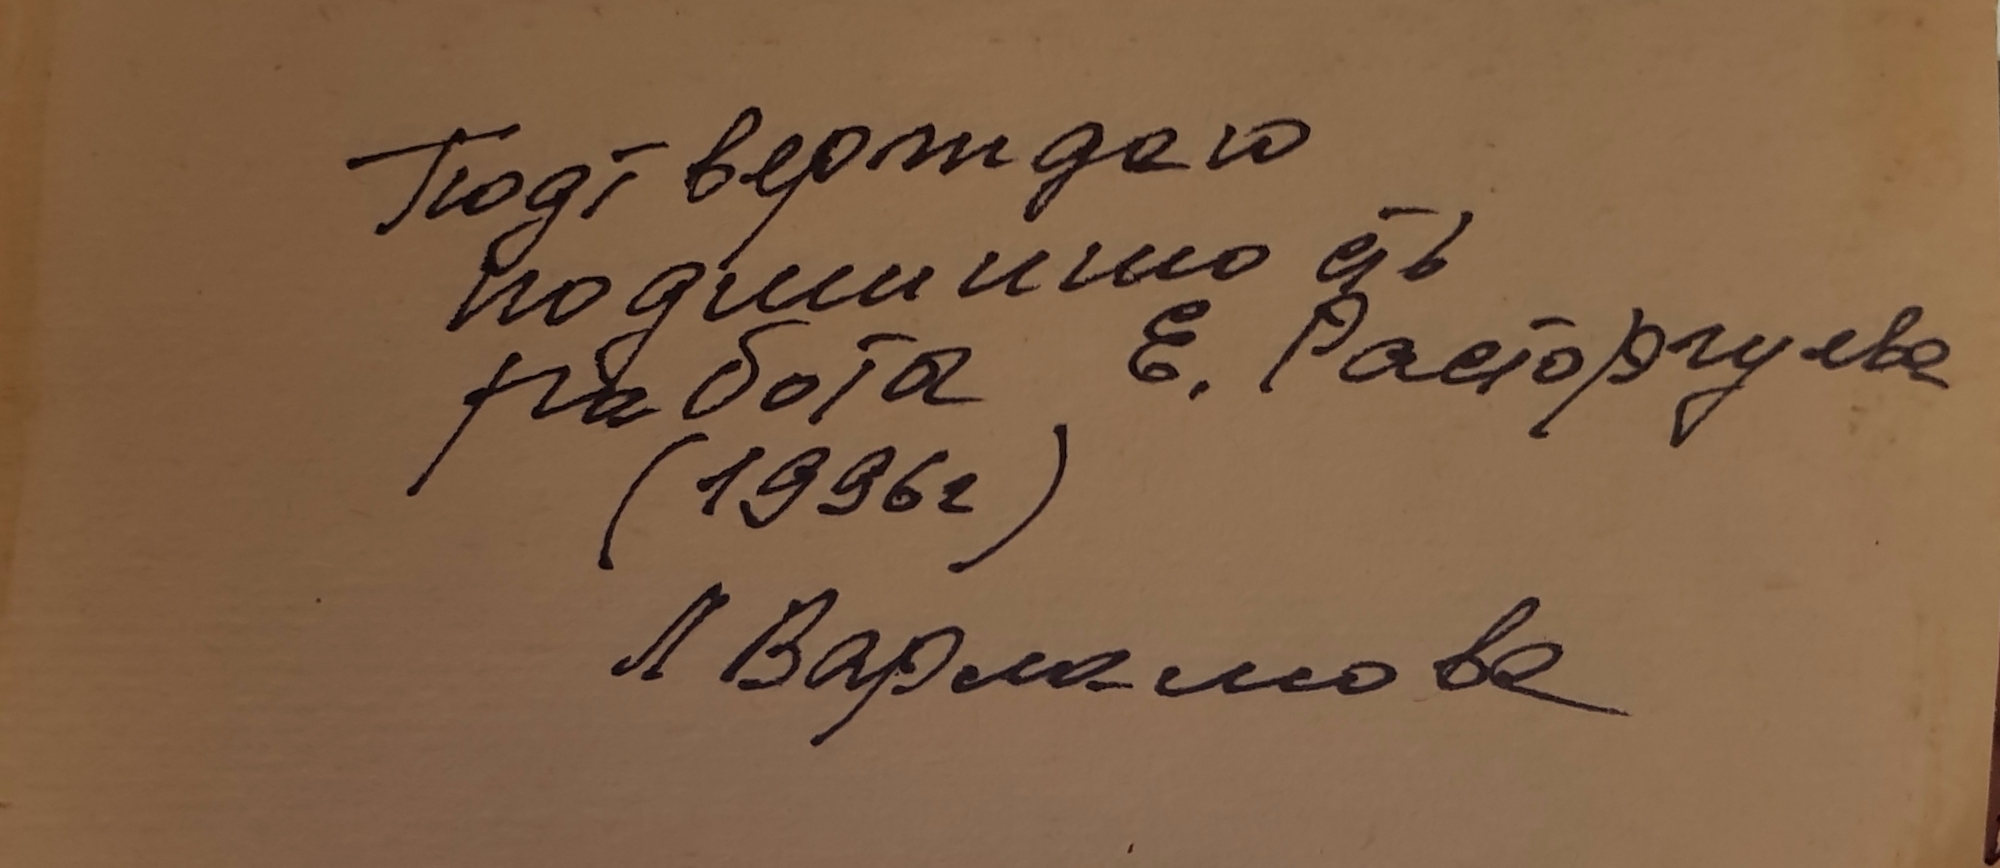 Подтверждаю
подлинность
работа Е. Расторгуева
(1996г)
Л Варламова